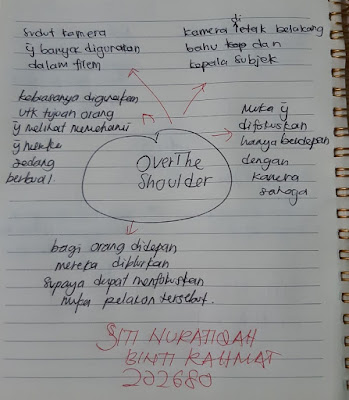 sudut kamera
ÿ banyak digunakan
dalam filem
kamera di letak belakang
bahu kap dan
kapala subjek
kebiasanya digunakan
utk tujuan orang
ÿ melihat memahami
ÿ mereka
sedang
berbual
muka ÿ
difokuskan
hanya berdepan
dengan
kamera
sahaja
OverThe
Shoulder
bagi orang didepan
mereka diblurkan
supaya dapat memfokuskan
muka pelakon tersebut.
SITI NURATIQAH
BINTI RAHMAT
202680